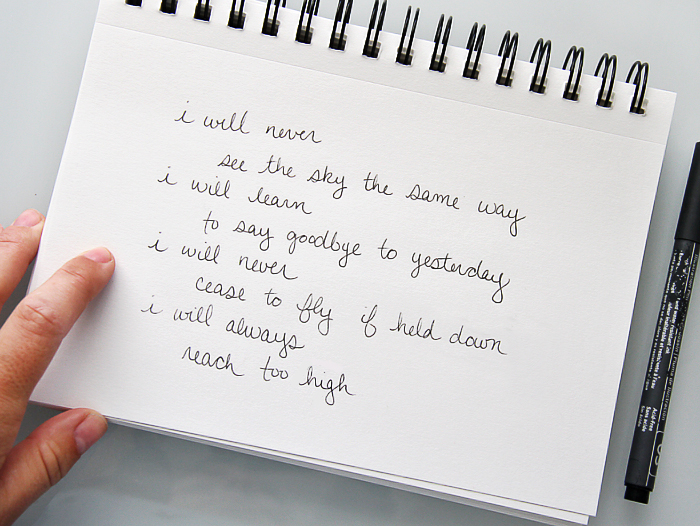 i will never
see the sky the same way
i will learn
to say goodbye to yesterday
i will never
cease to fly if held down
i will always
reach too high
Acid-Free
Sans acide
05